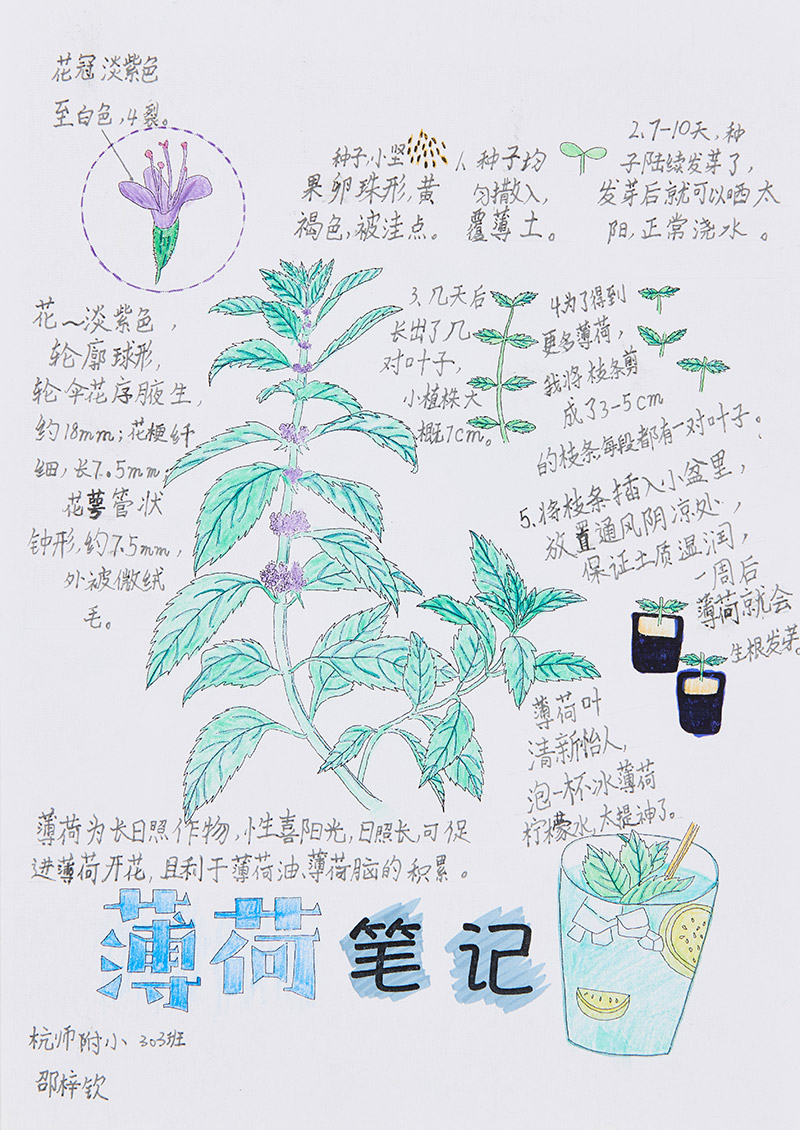 花冠淡紫色
至白色,4裂。
种子,小坚
果卵珠形,黄
褐色,被洼点。
1、种子均
匀撒入,
覆薄土。
2、7-10天,种
子陆续发芽了,
发芽后就可以晒太
阳,正常浇水。
花~淡紫色,
轮廓球形,
轮伞花序腋生,
约18mm;花梗纤
细,长7.5mm;
花萼管状
钟形,约7.5mm,
外被微绒
毛。
3、几天后
长出了几
对叶子,
小植株大
概7cm。
4为了得到
更多薄荷,
我将枝条剪
成了3-5cm
的枝条,每段都有一对叶子。
5、将枝条插入小盆里,
放置通风阴凉处,
保证土质湿润,
一周后
薄荷就会
生根发芽。
薄荷叶
清新怡人,
泡一杯冰薄荷
柠檬水,太提神了。
薄荷为长日照作物,性喜阳光,日照长,可促
进薄荷开花,且利于薄荷油、薄荷脑的积累。
薄荷笔记
杭师附小 303班
邵梓钦